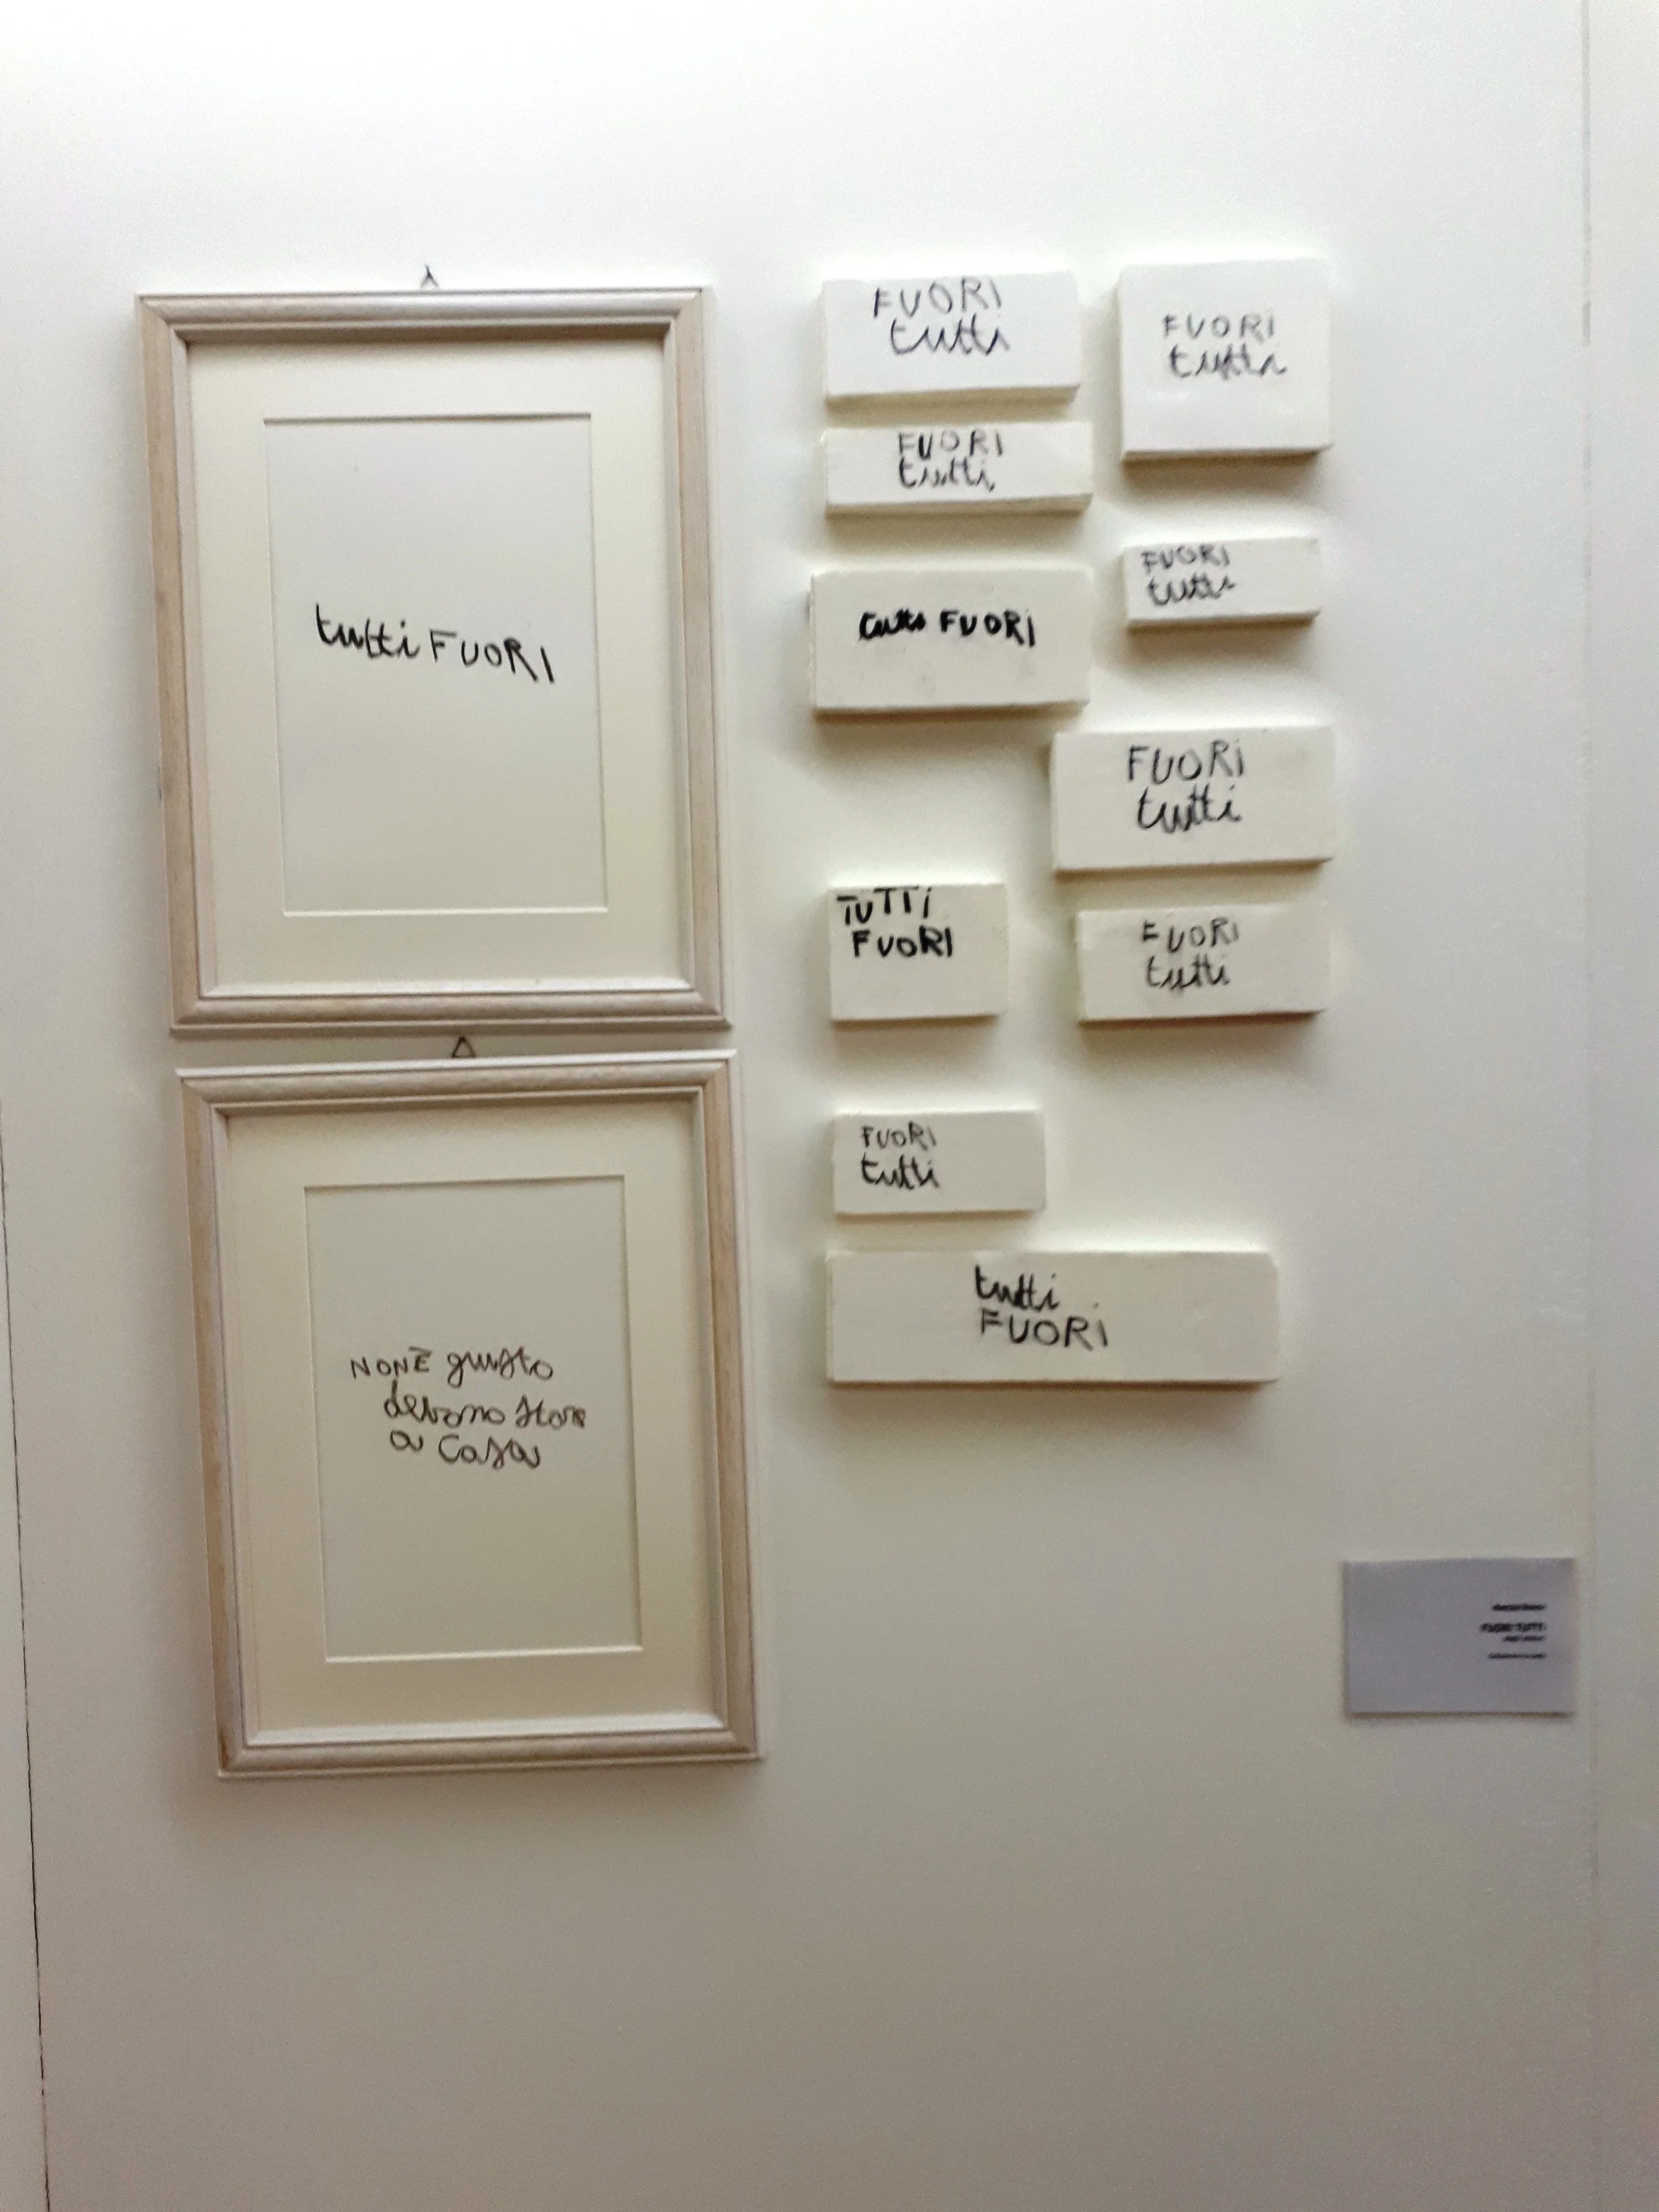 tutti FUORI
NON È giusto
devono stare
a casa
FUORI
tutti
FUORI
tutti
FUORI
tutti
FUORI
tutti
tutti FUORI
FUORI
tutti
TUTTi
FUORI
FUORI
tutti
FUORI
tutti
tutti
FUORi
FUORI TUTTI